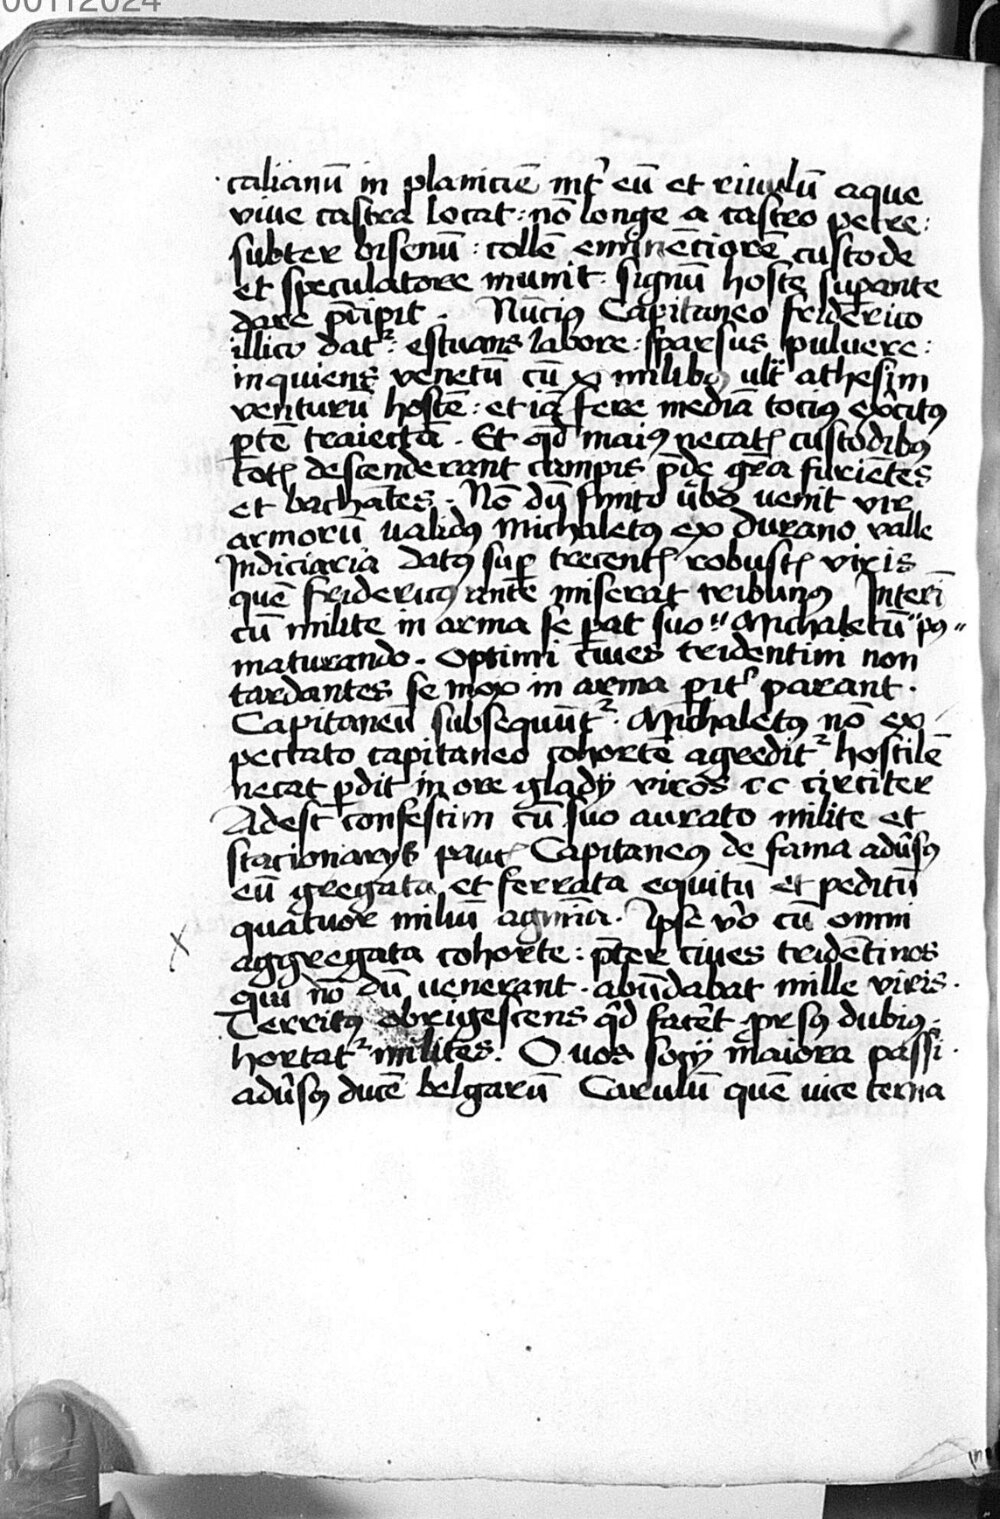 00112024
calianū in planiciē int̕ eū et riuulū aque
viue castra locat : nō longe a castro petre :
subter bisenū : collē eminēciorē custode
et speculatore munit · signū hoste supante
dare p̄cipit . Nūciꝰ Capitaneo friderico
illico datᷣ : estuans labore : sparsus puluere :
inquiens venetū cū x milibꝰ ultͣ athesim
venturū hostē : et iā fere mediā tociꝰ exc̄itꝰ
ꝑtē traiectā . Et qd̄ maiꝰ necatꝭ custodibꝰ
totꝭ descenderant campis p̄de gr̄a furiētes
et bachātes . Nō dū finito ūbo uenit vir
armorū ualidꝰ Michaletꝰ ex durano valle
Iudiciaria datꝰ suꝑ trecentꝭ robustꝭ viris
quē fridericꝰ ante miserat tribunꝰ Interī
cū milite in arma se ꝑat suo " Michaletū " pꝰ "
maturando . Optimi ciues tridentini non
tardantes se mox in arma ꝑit̕ parant .
Capitaneū subsequūtᷣ . Michaletꝰ nō ex
pectato capitaneo cohortē agreditᷣ hostilē
necat ꝑdit in ore gladij viros c c circiter
Adest confestim cū suo aurato milite et
stacionarijs paucꝭ Capitaneꝰ de fama adūsꝰ
eū gregata et ferrata equitū et peditū
quatuor miliū agmīa . Ipse v̄o cū omni
X aggregata cohorte : p̄ter ciues tridētinos
qui nō dū uenerant . abūdabat mille viris .
Territꝰ obrigescens qd̄ facēt ꝓrsꝰ dubiꝰ .
hortatᷣ milites . O uos socij maiora passi .
adūsꝰ ducē belgarū Carulū quē uice terna